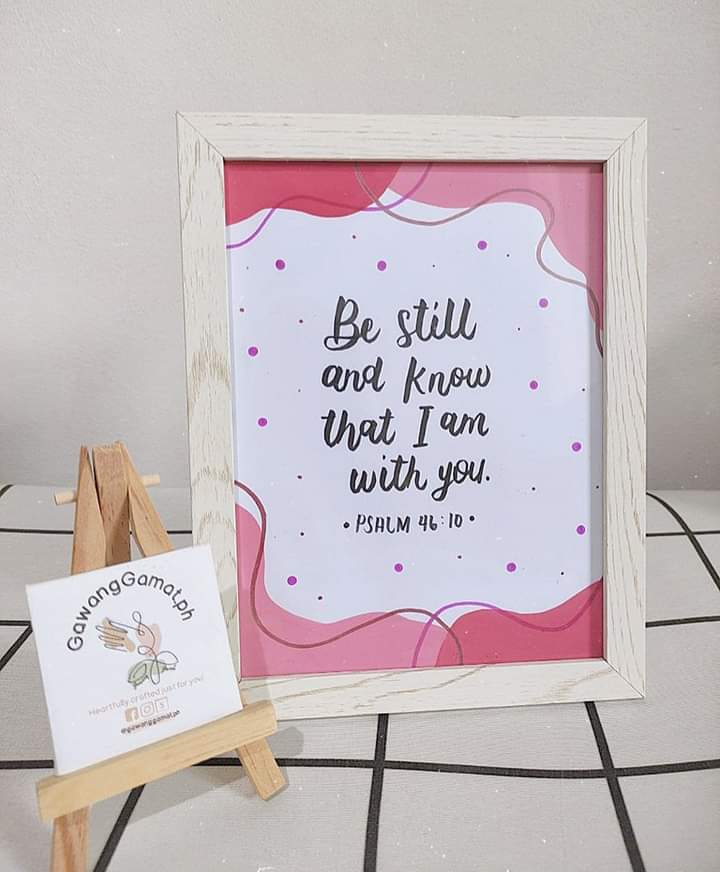 Be still
and know
that I am
with you.
• PSALM 46:10 •
GawangGamat.ph
Heartfully crafted just for you!
@gawanggamat.ph